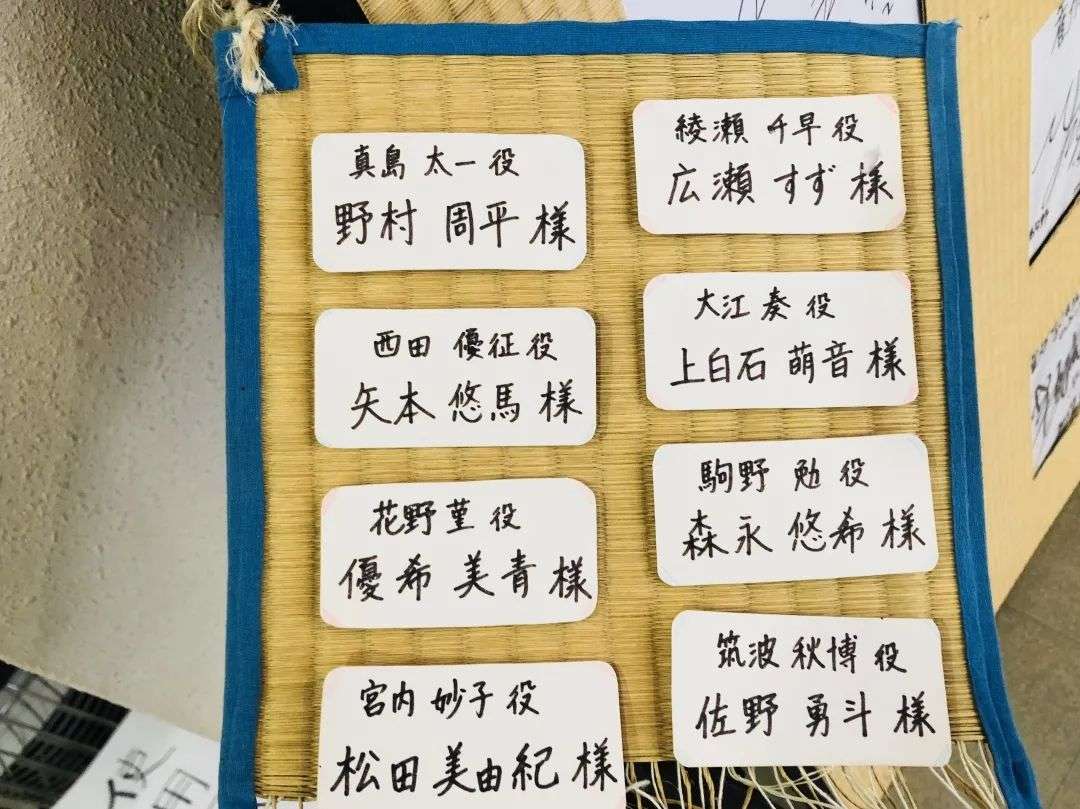 綾瀬 千早 役
広瀬 すず 様
大江 奏 役
上白石 萌音 様
駒野 勉 役
森永 悠希 様
筑波 秋博 役
佐野 勇斗 様
真島 太一 役
野村 周平 様
西田 優征 役
矢本 悠馬 様
花野 菫 役
優希 美青 様
宮内 妙子 役
松田 美由紀 様